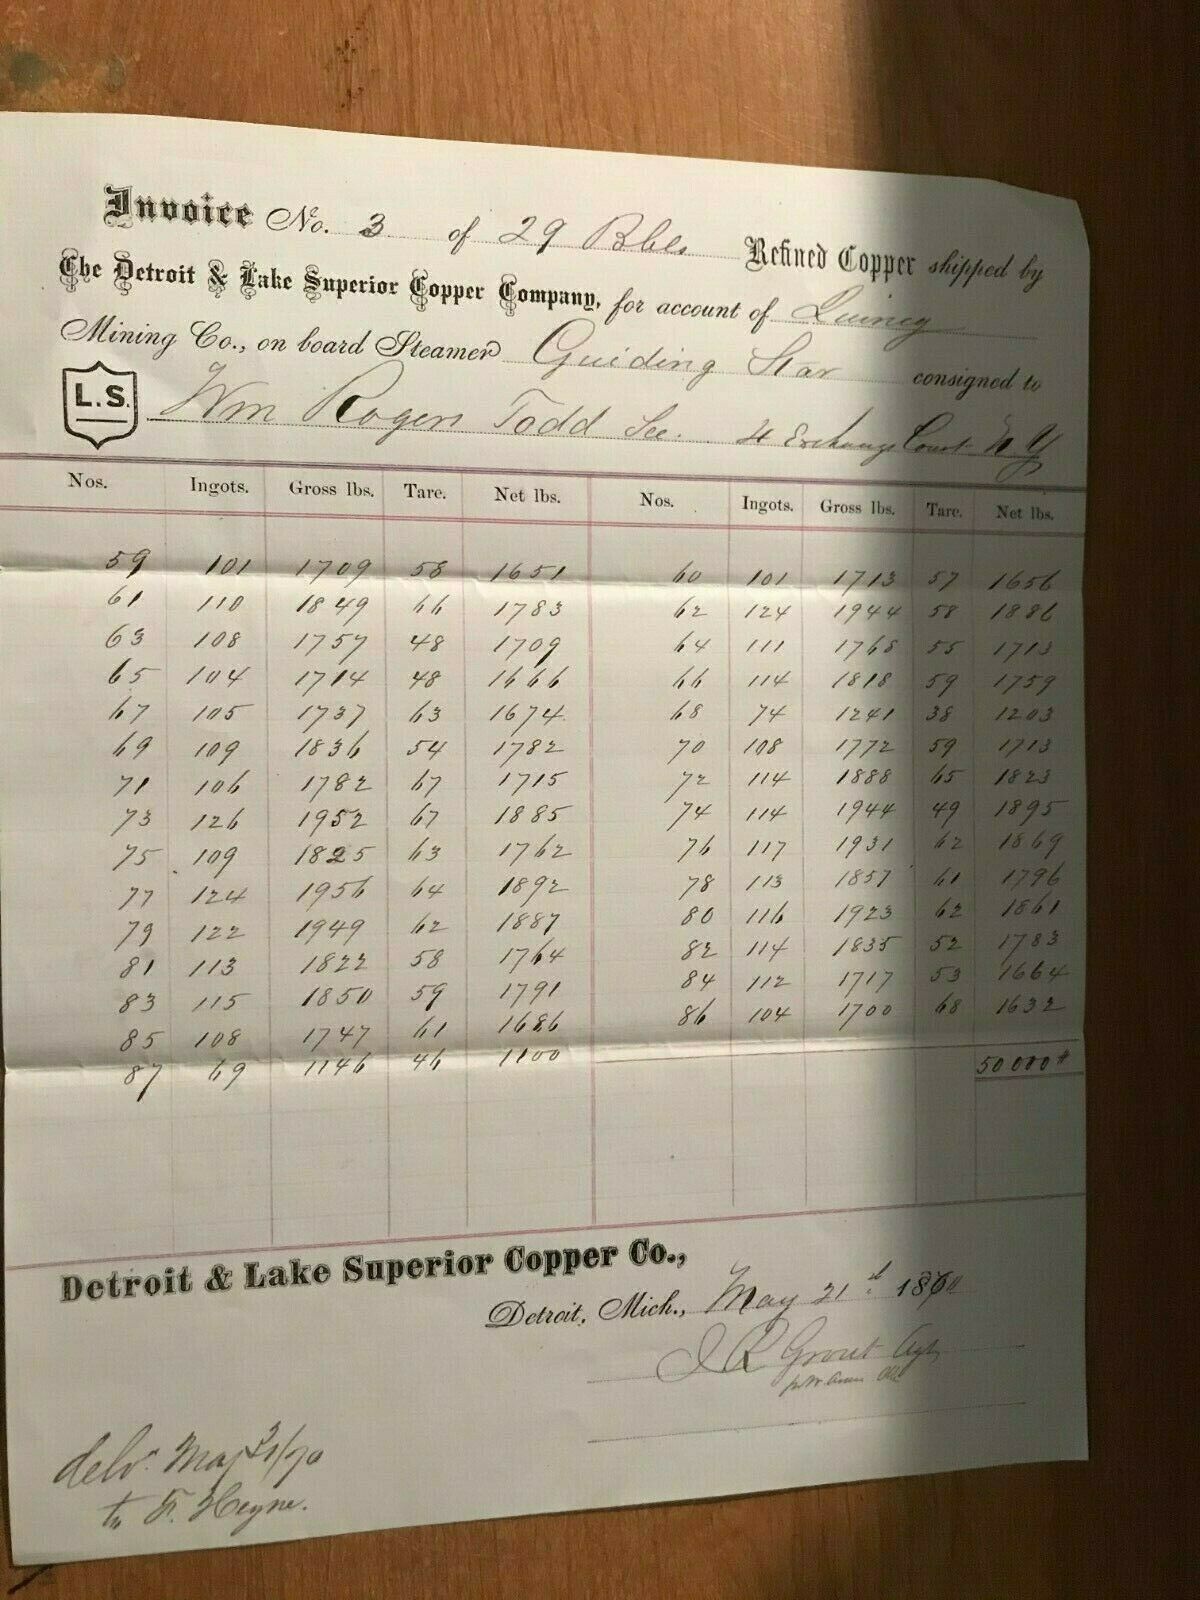 Invoice No. 3 of 29 Bbls Refined Copper shipped by
The Detroit & Lake Superior Copper Company, for account of Quincy
Mining Co., on board Steamer Guiding Star consigned to
L.S. Wm Rogers Todd Sec. 4 Exchange Court N Y
Nos. Ingots. Gross lbs. Tare. Net lbs. Nos. Ingots. Gross lbs. Tare. Net lbs.
59 101 1709 58 1651 60 101 1713 57 1656
61 110 1849 66 1783 62 124 1944 58 1886
63 108 1757 48 1709 64 111 1768 55 1713
65 104 1714 48 1666 66 114 1818 59 1759
67 105 1737 63 1674 68 74 1241 38 1203
69 109 1836 54 1782 70 108 1772 59 1713
71 106 1782 67 1715 72 114 1888 65 1823
73 126 1952 67 1885 74 114 1944 49 1895
75 109 1825 63 1762 76 117 1931 62 1869
77 124 1956 64 1892 78 113 1857 61 1796
79 122 1949 62 1887 80 116 1923 62 1861
81 113 1822 58 1764 82 114 1835 52 1783
83 115 1850 59 1791 84 112 1717 53 1664
85 108 1747 61 1686 86 104 1700 68 1632
87 69 1146 46 1100 50000#
Detroit & Lake Superior Copper Co.,
Detroit, Mich., May 21st 1870
J R Grout Agt
delv. May 31/70
to F. Heyne.